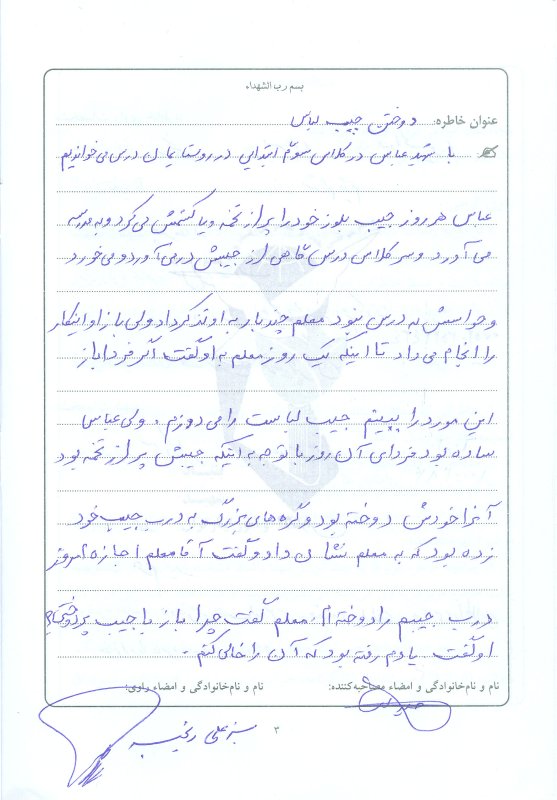 بسم رب الشهداء
عنوان خاطره: دوختن جیب لباس
با شهید عباس در کلاس سوم ابتدایی در روستایمان درس می‌خواندیم
عباس هر روز جیب بلوز خود را پر از تخمه و یا کشمش می کرد و به مدرسه
می آورد و سر کلاس درس گاهی از جیبش در می آورد و می خورد
و حواسش به درس نبود معلم چند بار به او تذکر داد ولی باز او اینکار
را انجام می داد تا اینکه یک روز معلم به او گفت اگر فردا باز
این مورد را ببینم جیب لباست را می دوزم . ولی عباس
ساده بود فردای آن روز با توجه به اینکه جیبش پر از تخمه بود
آنرا خودش دوخته بود و گره های بزرگ به درب جیب خود
زده بود که به معلم نشان می داد و گفت آقا معلم اجازه امروز
درب جیبم را دوخته ام ، معلم گفت چرا باز با جیب پر دوختی؟
او گفت یادم رفته بود که آن را خالی کنم .
نام و نام‌خانوادگی و امضاء مصاحبه‌کننده: نام و نام‌خانوادگی و امضاء راوی:
۳